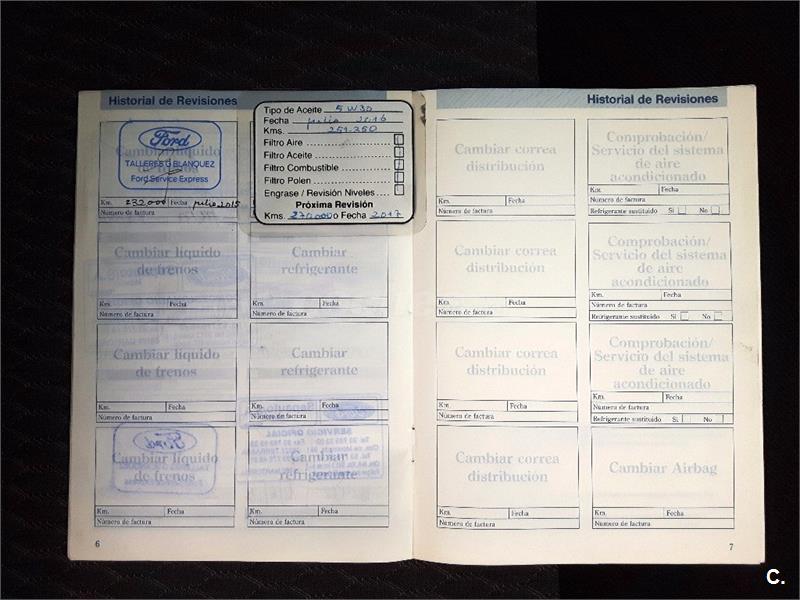 Historial de Revisiones
Ford
Cambiar líquido
TALLERES G BLANQUEZ
Ford Service Express
Km. 232000 Fecha julio 2015
Número de factura
Tipo de Aceite 5W30
Fecha julio 2016
Kms. 251.250
Filtro Aire
Filtro Aceite
Filtro Combustible
Filtro Polen
Engrase / Revisión Niveles
Próxima Revisión
Kms. 270000 o Fecha 2017
Cambiar líquido
de frenos
Km. Fecha
Número de factura
Cambiar
refrigerante
Km. Fecha
Número de factura
Cambiar líquido
de frenos
Km. Fecha
Número de factura
Cambiar
refrigerante
Km. Fecha
Número de factura
Ford
Cambiar líquido
de frenos
Km. Fecha
Número de factura
SERVICIO OFICIAL
Cambiar
refrigerante
Km. Fecha
Número de factura
6
Historial de Revisiones
Cambiar correa
distribución
Km. Fecha
Número de factura
Comprobación/
Servicio del sistema
de aire
acondicionado
Km. Fecha
Número de factura
Refrigerante sustituido Sí No
Cambiar correa
distribución
Km. Fecha
Número de factura
Comprobación/
Servicio del sistema
de aire
acondicionado
Km. Fecha
Número de factura
Refrigerante sustituido Sí No
Cambiar correa
distribución
Km. Fecha
Número de factura
Comprobación/
Servicio del sistema
de aire
acondicionado
Km. Fecha
Número de factura
Refrigerante sustituido Sí No
Cambiar correa
distribución
Km. Fecha
Número de factura
Cambiar Airbag
Km. Fecha
Número de factura
7
C.